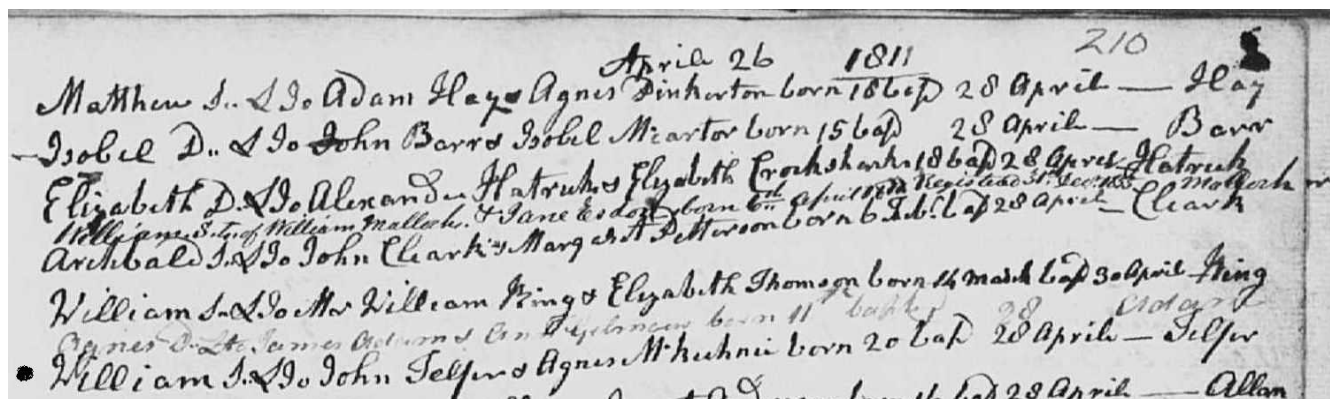 210
April 26 1811
Matthew S.. L To Adam Hay & Agnes Pinkerton born 18 bap 28 April — Hay
— Isobel D.. L To John Barr & Isobel Mcartor born 15 bap 28 April — Barr
Elizabeth D. L To Alexander Hatrick & Elizabeth Crockshanks 18 bap 28 April Hatrick
William S. of William Malloch & Jane born 6th April Malloch
Archbald S. L To John Cleark & Margaret Petterson born 6 bap 28 April — Cleark
William S. L To Mr William King & Elizabeth Thomson born 14 March bap 30 April King
Agnes D. L To James Adam & Ann born 11th 28 Adam
William S. L To John Telfer & Agnes McKechnie born 20 bap 28 April — Telfer
bap 28 April — Allan